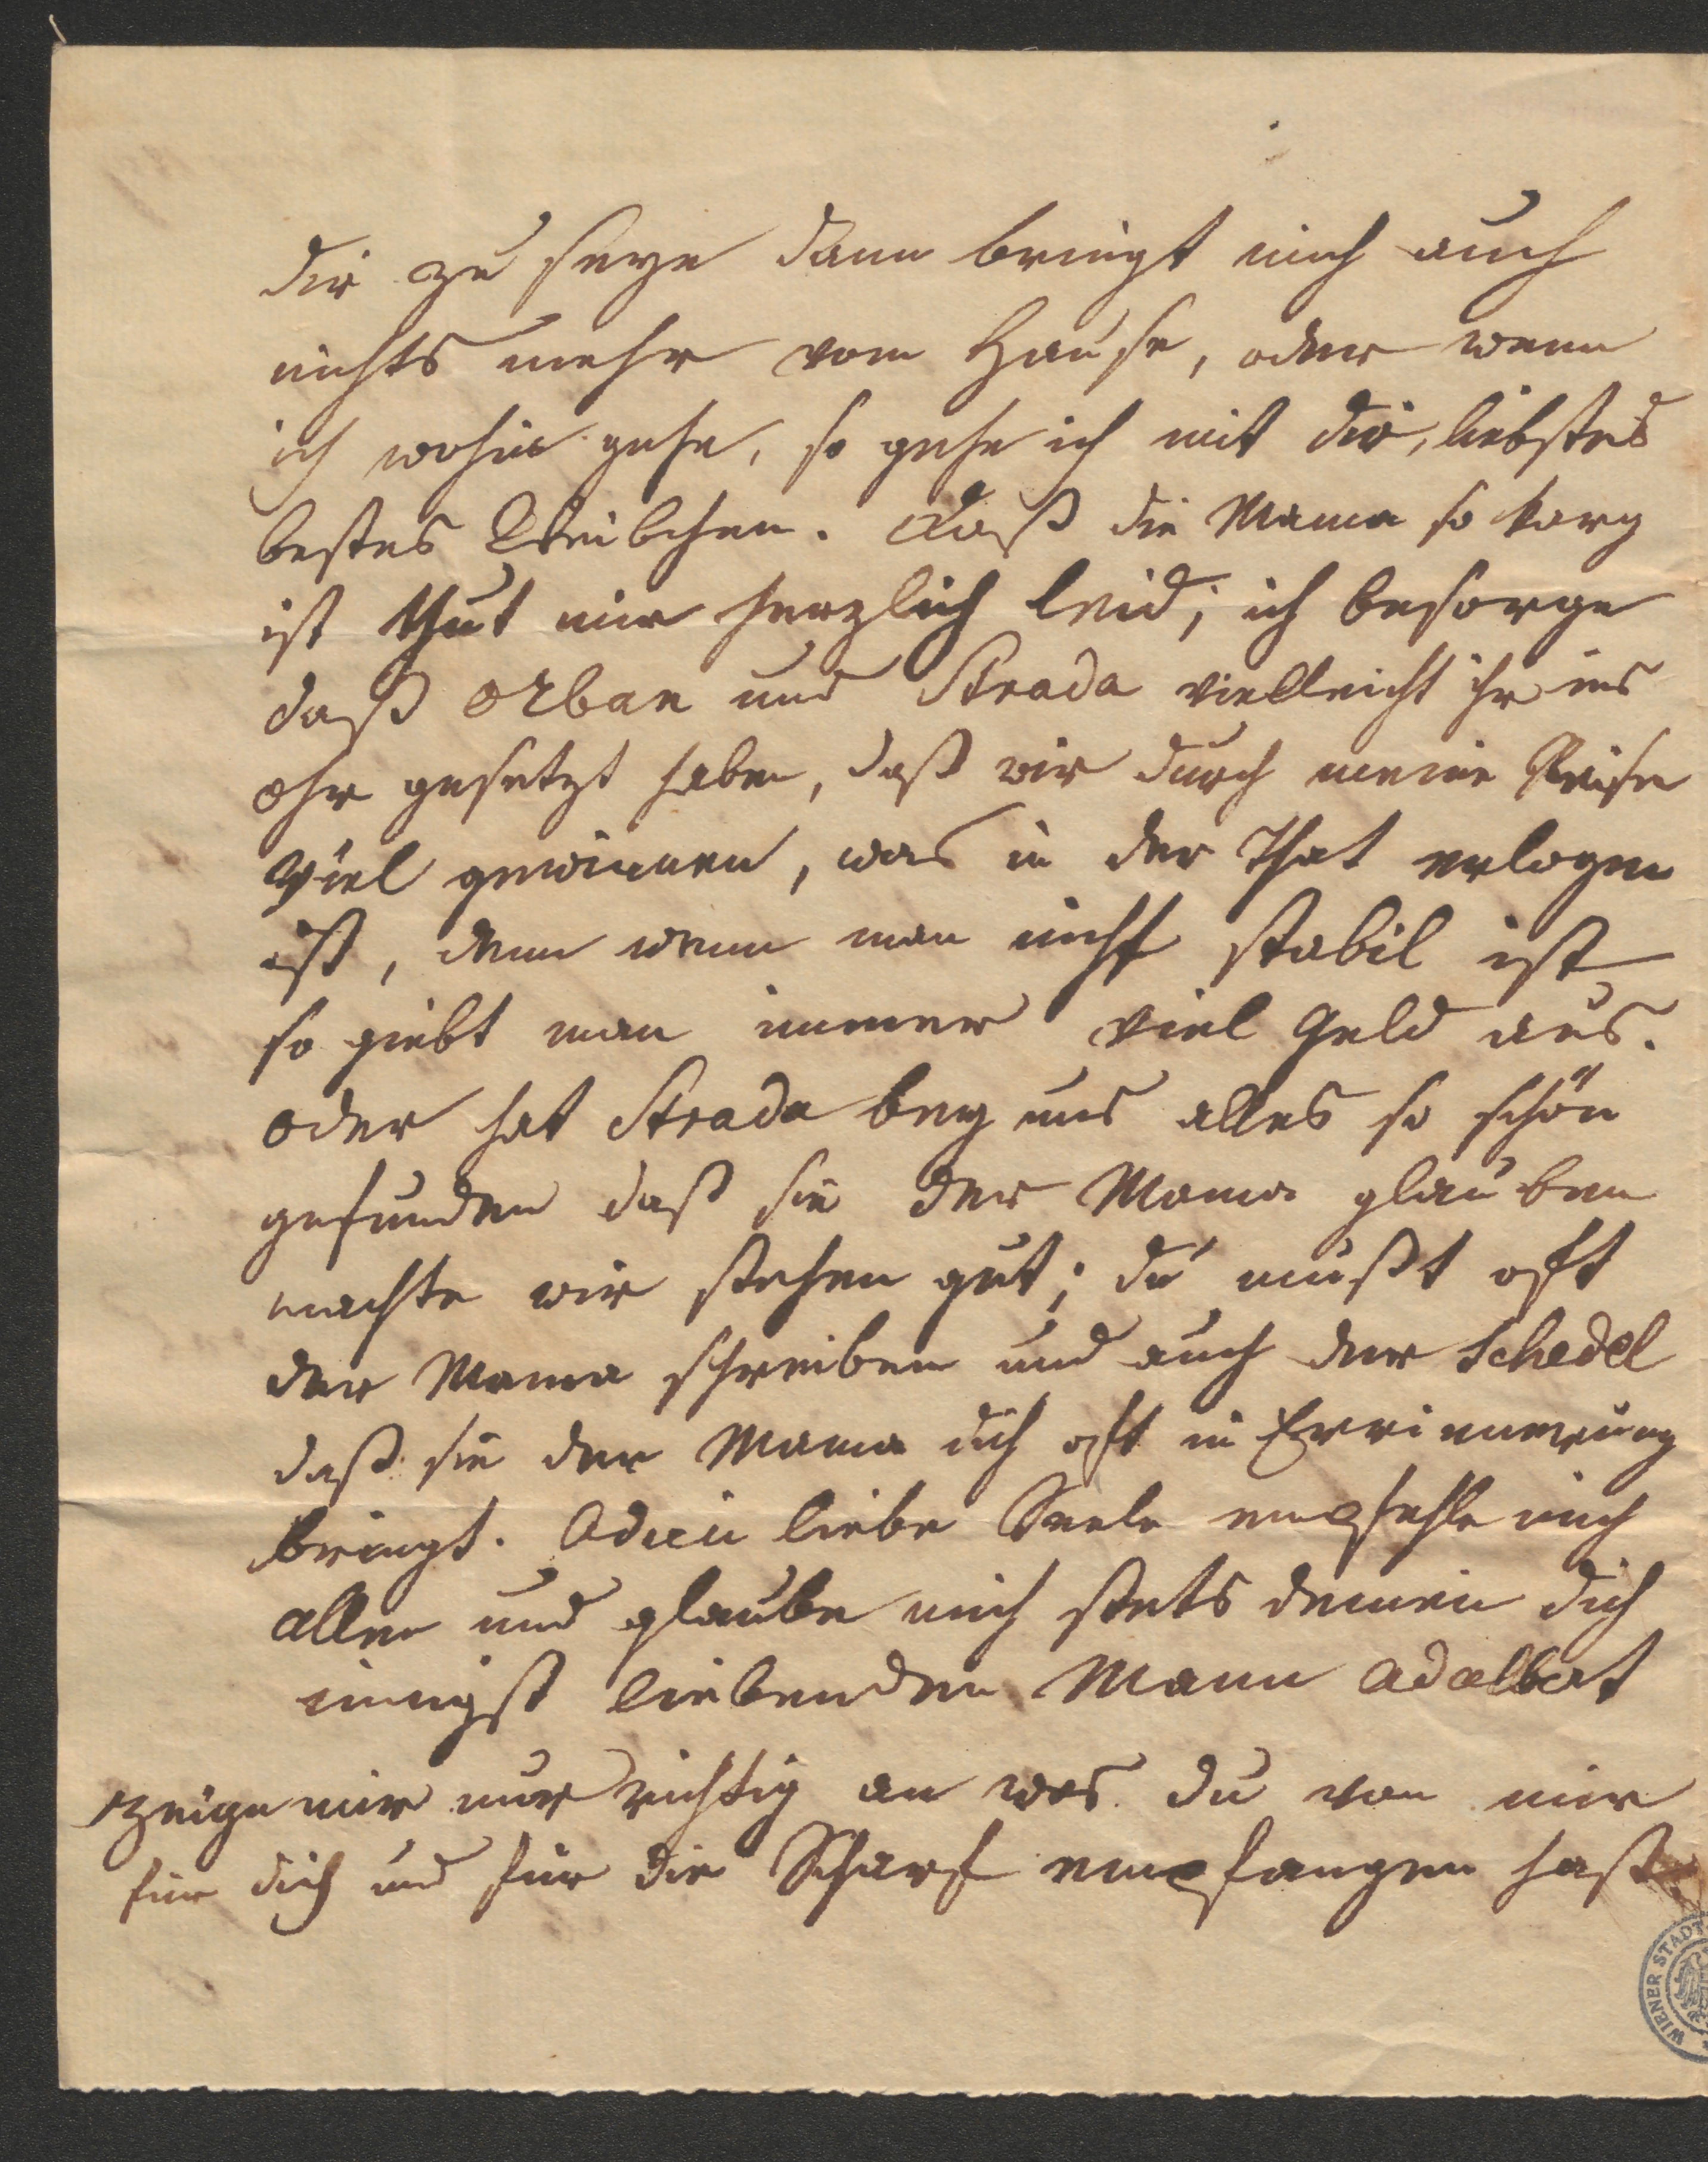 dir zu seyn dann bringt mich auch
nichts mehr vom Hause, oder wenn
ich wohin gehe, so gehe ich mit dir, liebstes
bestes Weibchen. Daß die Mama so karg
ist thut mir herzlich leid; ich besorge
daß Orban und Strada vielleicht ihr ins
Ohr gesetzt haben, daß wir durch meine Reise
viel gewinnen, was in der That erlogen
ist, denn wenn man nicht stabil ist
so giebt man immer viel Geld aus.
Oder hat Strada bey uns alles so schön
gefunden daß sie der Mama glauben
machte wir stehen gut; du mußt oft
der Mama schreiben und auch der Schedel
daß sie der Mama dich oft in Errinnerung
bringt. Adieu liebe Seele empfehle mich
allen und glaube mich stets deinen dich
innigst liebenden Mann Adalbert
zeige mir nur richtig an was du von mir
für dich und für die Scharf empfangen hast
WIENER STADT